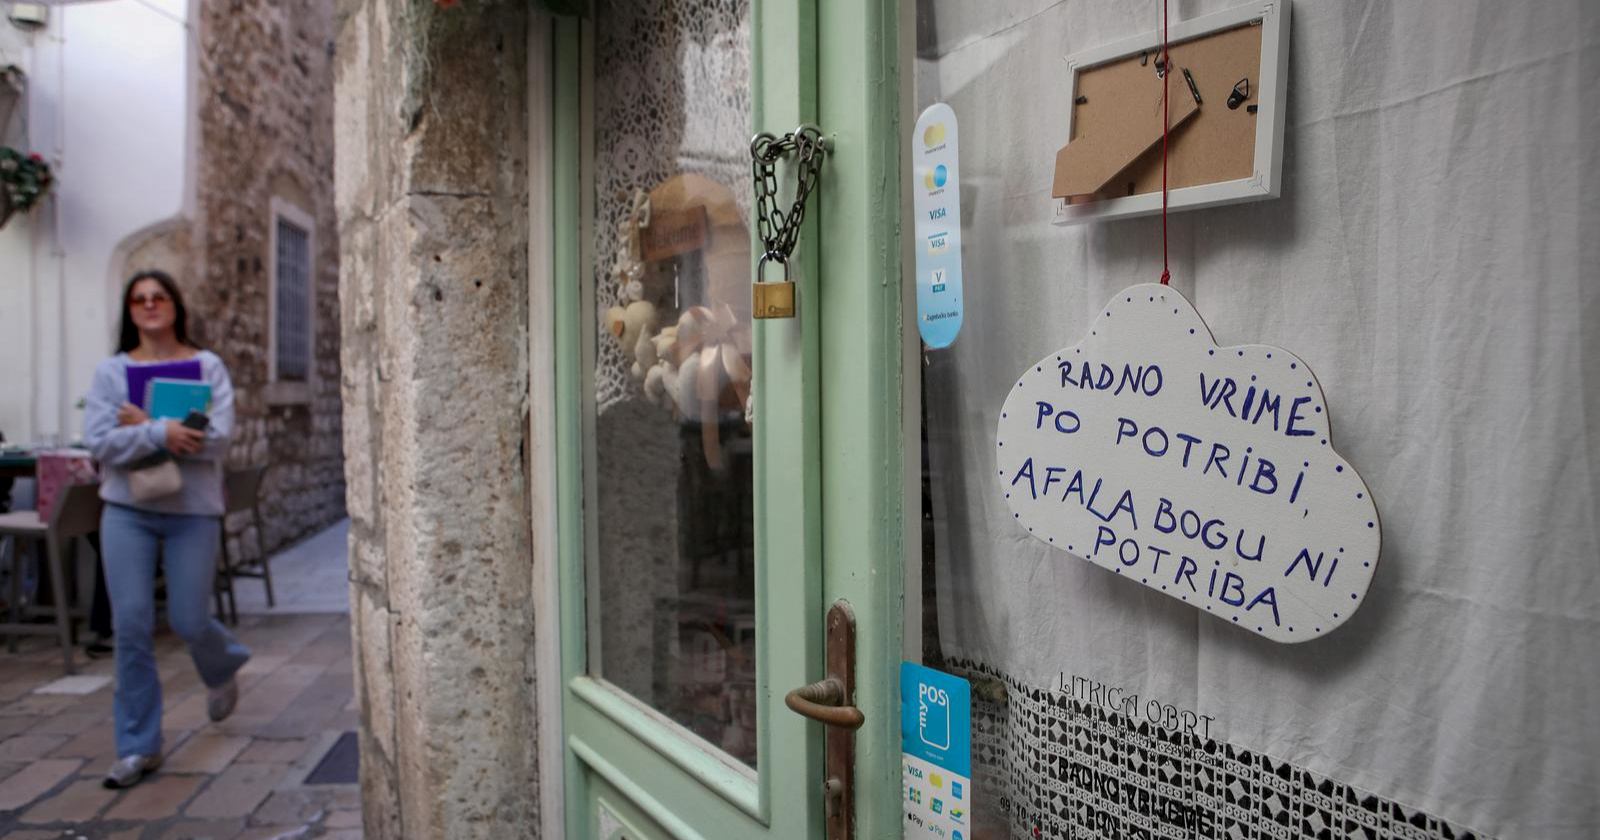 RADNO VRIME:
PO POTRIBI,
AFALA BOGU NI
POTRIBA
Welcome
mastercard
maestro
VISA
VISA
V
PAY
Zagrebačka banka
myPOS
VISA
Pay
G Pay
LITKICA OBRT
RADNO VRIJEME